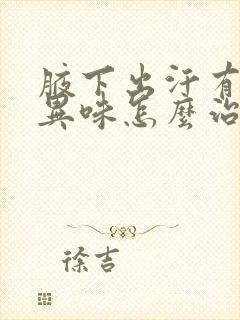 腋下出汗有
異味怎麼治
徐吉